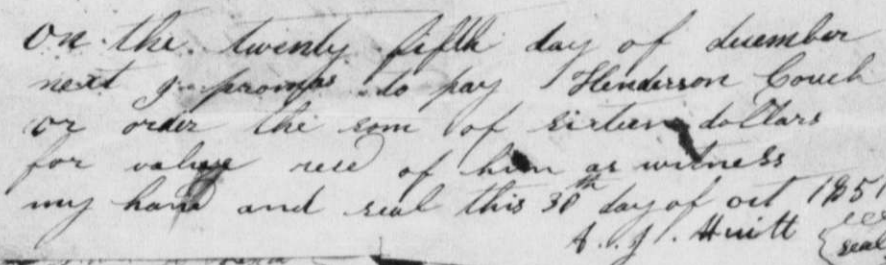 On the twenty fifth day of december
next I promps to pay Henderson Couch
or order the som of sixteen dollars
for value recd of him as witness
my hand and seal this 30th day of oct 1851
A. J. Huitt seal